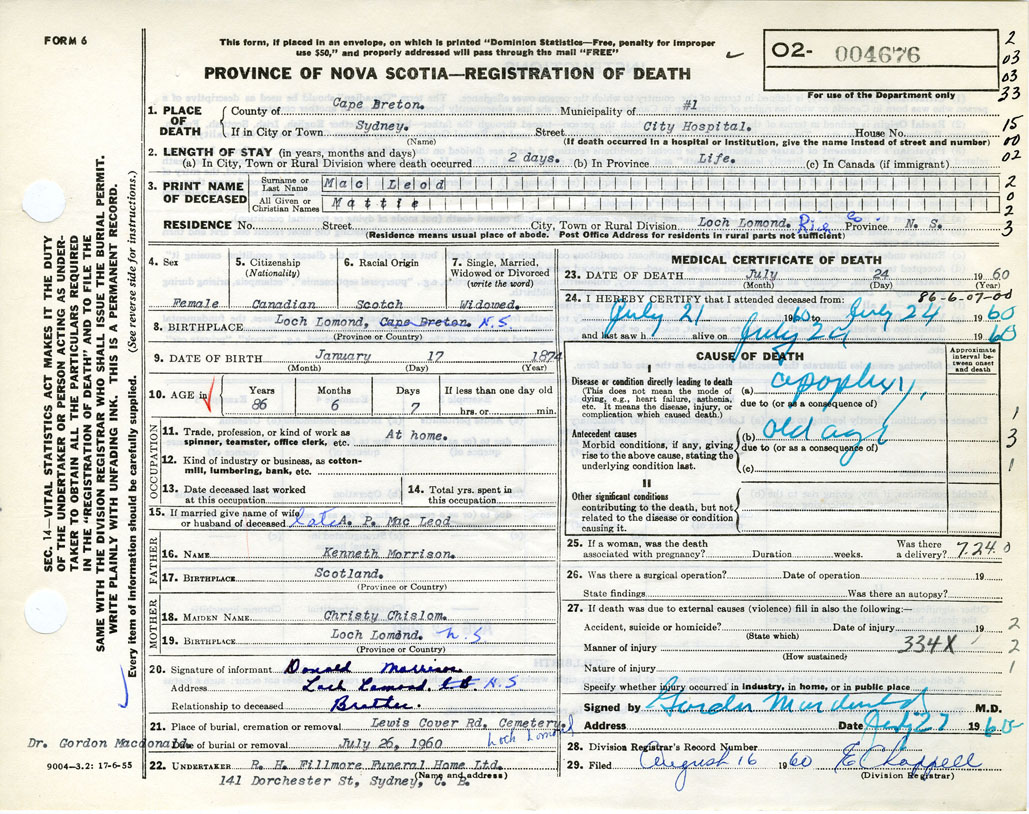 FORM 6
This form, if placed in an envelope, on which is printed "Dominion Statistics—Free, penalty for improper
use $50," and properly addressed will pass through the mail "FREE"
O2- 004676
For use of the Department only
PROVINCE OF NOVA SCOTIA—REGISTRATION OF DEATH
2
03
03
33
15
00
02
2
0
2
3
SEC. 14—VITAL STATISTICS ACT MAKES IT THE DUTY
OF THE UNDERTAKER OR PERSON ACTING AS UNDER-
TAKER TO OBTAIN ALL THE PARTICULARS REQUIRED
IN THE "REGISTRATION OF DEATH" AND TO FILE THE
SAME WITH THE DIVISION REGISTRAR WHO SHALL ISSUE THE BURIAL PERMIT.
WRITE PLAINLY WITH UNFADING INK. THIS IS A PERMANENT RECORD.
Every item of information should be carefully supplied. (See reverse side for instructions.)
1. PLACE OF DEATH County of Cape Breton. Municipality of #1
If in City or Town Sydney. Street City Hospital. House No.
(Name) (If death occurred in a hospital or institution, give the name instead of street and number)
2. LENGTH OF STAY (in years, months and days)
(a) In City, Town or Rural Division where death occurred 2 days. (b) In Province Life. (c) In Canada (if immigrant)
3. PRINT NAME OF DECEASED Surname or Last Name Mac Leod
All Given or Christian Names Mattie
RESIDENCE No. Street City, Town or Rural Division Loch Lomond. Rich Co Province N. S.
(Residence means usual place of abode. Post Office Address for residents in rural parts not sufficient)
4. Sex
Female
5. Citizenship
(Nationality)
Canadian
6. Racial Origin
Scotch
7. Single, Married,
Widowed or Divorced
(write the word)
Widowed.
8. BIRTHPLACE Loch Lomond, Cape Breton. N.S
(Province or Country)
9. DATE OF BIRTH January 17 1874
(Month) (Day) (Year)
10. AGE in Years Months Days If less than one day old
86 6 7 hrs. or min.
OCCUPATION
11. Trade, profession, or kind of work as
spinner, teamster, office clerk, etc. At home.
12. Kind of industry or business, as cotton-
mill, lumbering, bank, etc.
13. Date deceased last worked
at this occupation
14. Total yrs. spent in
this occupation
15. If married give name of wife
or husband of deceased late A. P. Mac Leod
FATHER
16. NAME Kenneth Morrison.
17. BIRTHPLACE Scotland.
(Province or Country)
MOTHER
18. MAIDEN NAME Christy Chislom.
19. BIRTHPLACE Loch Lomond. N.S
(Province or Country)
20. Signature of informant Donald Morrison
Address Loch Lomond. C.B. N.S.
Relationship to deceased Brother
21. Place of burial, cremation or removal Lewis Cover Rd, Cemetery,
Loch Lomond
Dr. Gordon Macdonald.
Date of burial or removal July 26, 1960
9004—3.2: 17-6-55
22. UNDERTAKER R. H. Fillmore Funeral Home Ltd.
(Name and address)
141 Dorchester St, Sydney, C. B.
MEDICAL CERTIFICATE OF DEATH
23. DATE OF DEATH July 24 1960
(Month) (Day) (Year)
86-6-07-00
24. I HEREBY CERTIFY that I attended deceased from:
July 21 1960 to July 24 1960
and last saw h alive on July 1960
CAUSE OF DEATH
Approximate
interval be-
tween onset
and death
I
Disease or condition directly leading to death
(This does not mean the mode of
dying, e.g., heart failure, asthenia,
etc. It means the disease, injury, or
complication which caused death.)
(a) apoplexy
due to (or as a consequence of)
Antecedent causes
Morbid conditions, if any, giving
rise to the above cause, stating the
underlying condition last.
(b) old age
due to (or as a consequence of)
(c)
1
3
1
II
Other significant conditions
contributing to the death, but not
related to the disease or condition
causing it.
25. If a woman, was the death
associated with pregnancy? Duration weeks. Was there
a delivery? 7.24.0
26. Was there a surgical operation? Date of operation 19
State findings Was there an autopsy?
27. If death was due to external causes (violence) fill in also the following:—
Accident, suicide or homicide? Date of injury 19 2
(State which)
Manner of injury 334X 2
(How sustained)
Nature of injury 1
Specify whether injury occurred in industry, in home, or in public place
Signed by Gordon Macdonald M.D.
Address Date July 27 1960
28. Division Registrar's Record Number
29. Filed August 16 1960 E Chappell
(Division Registrar)